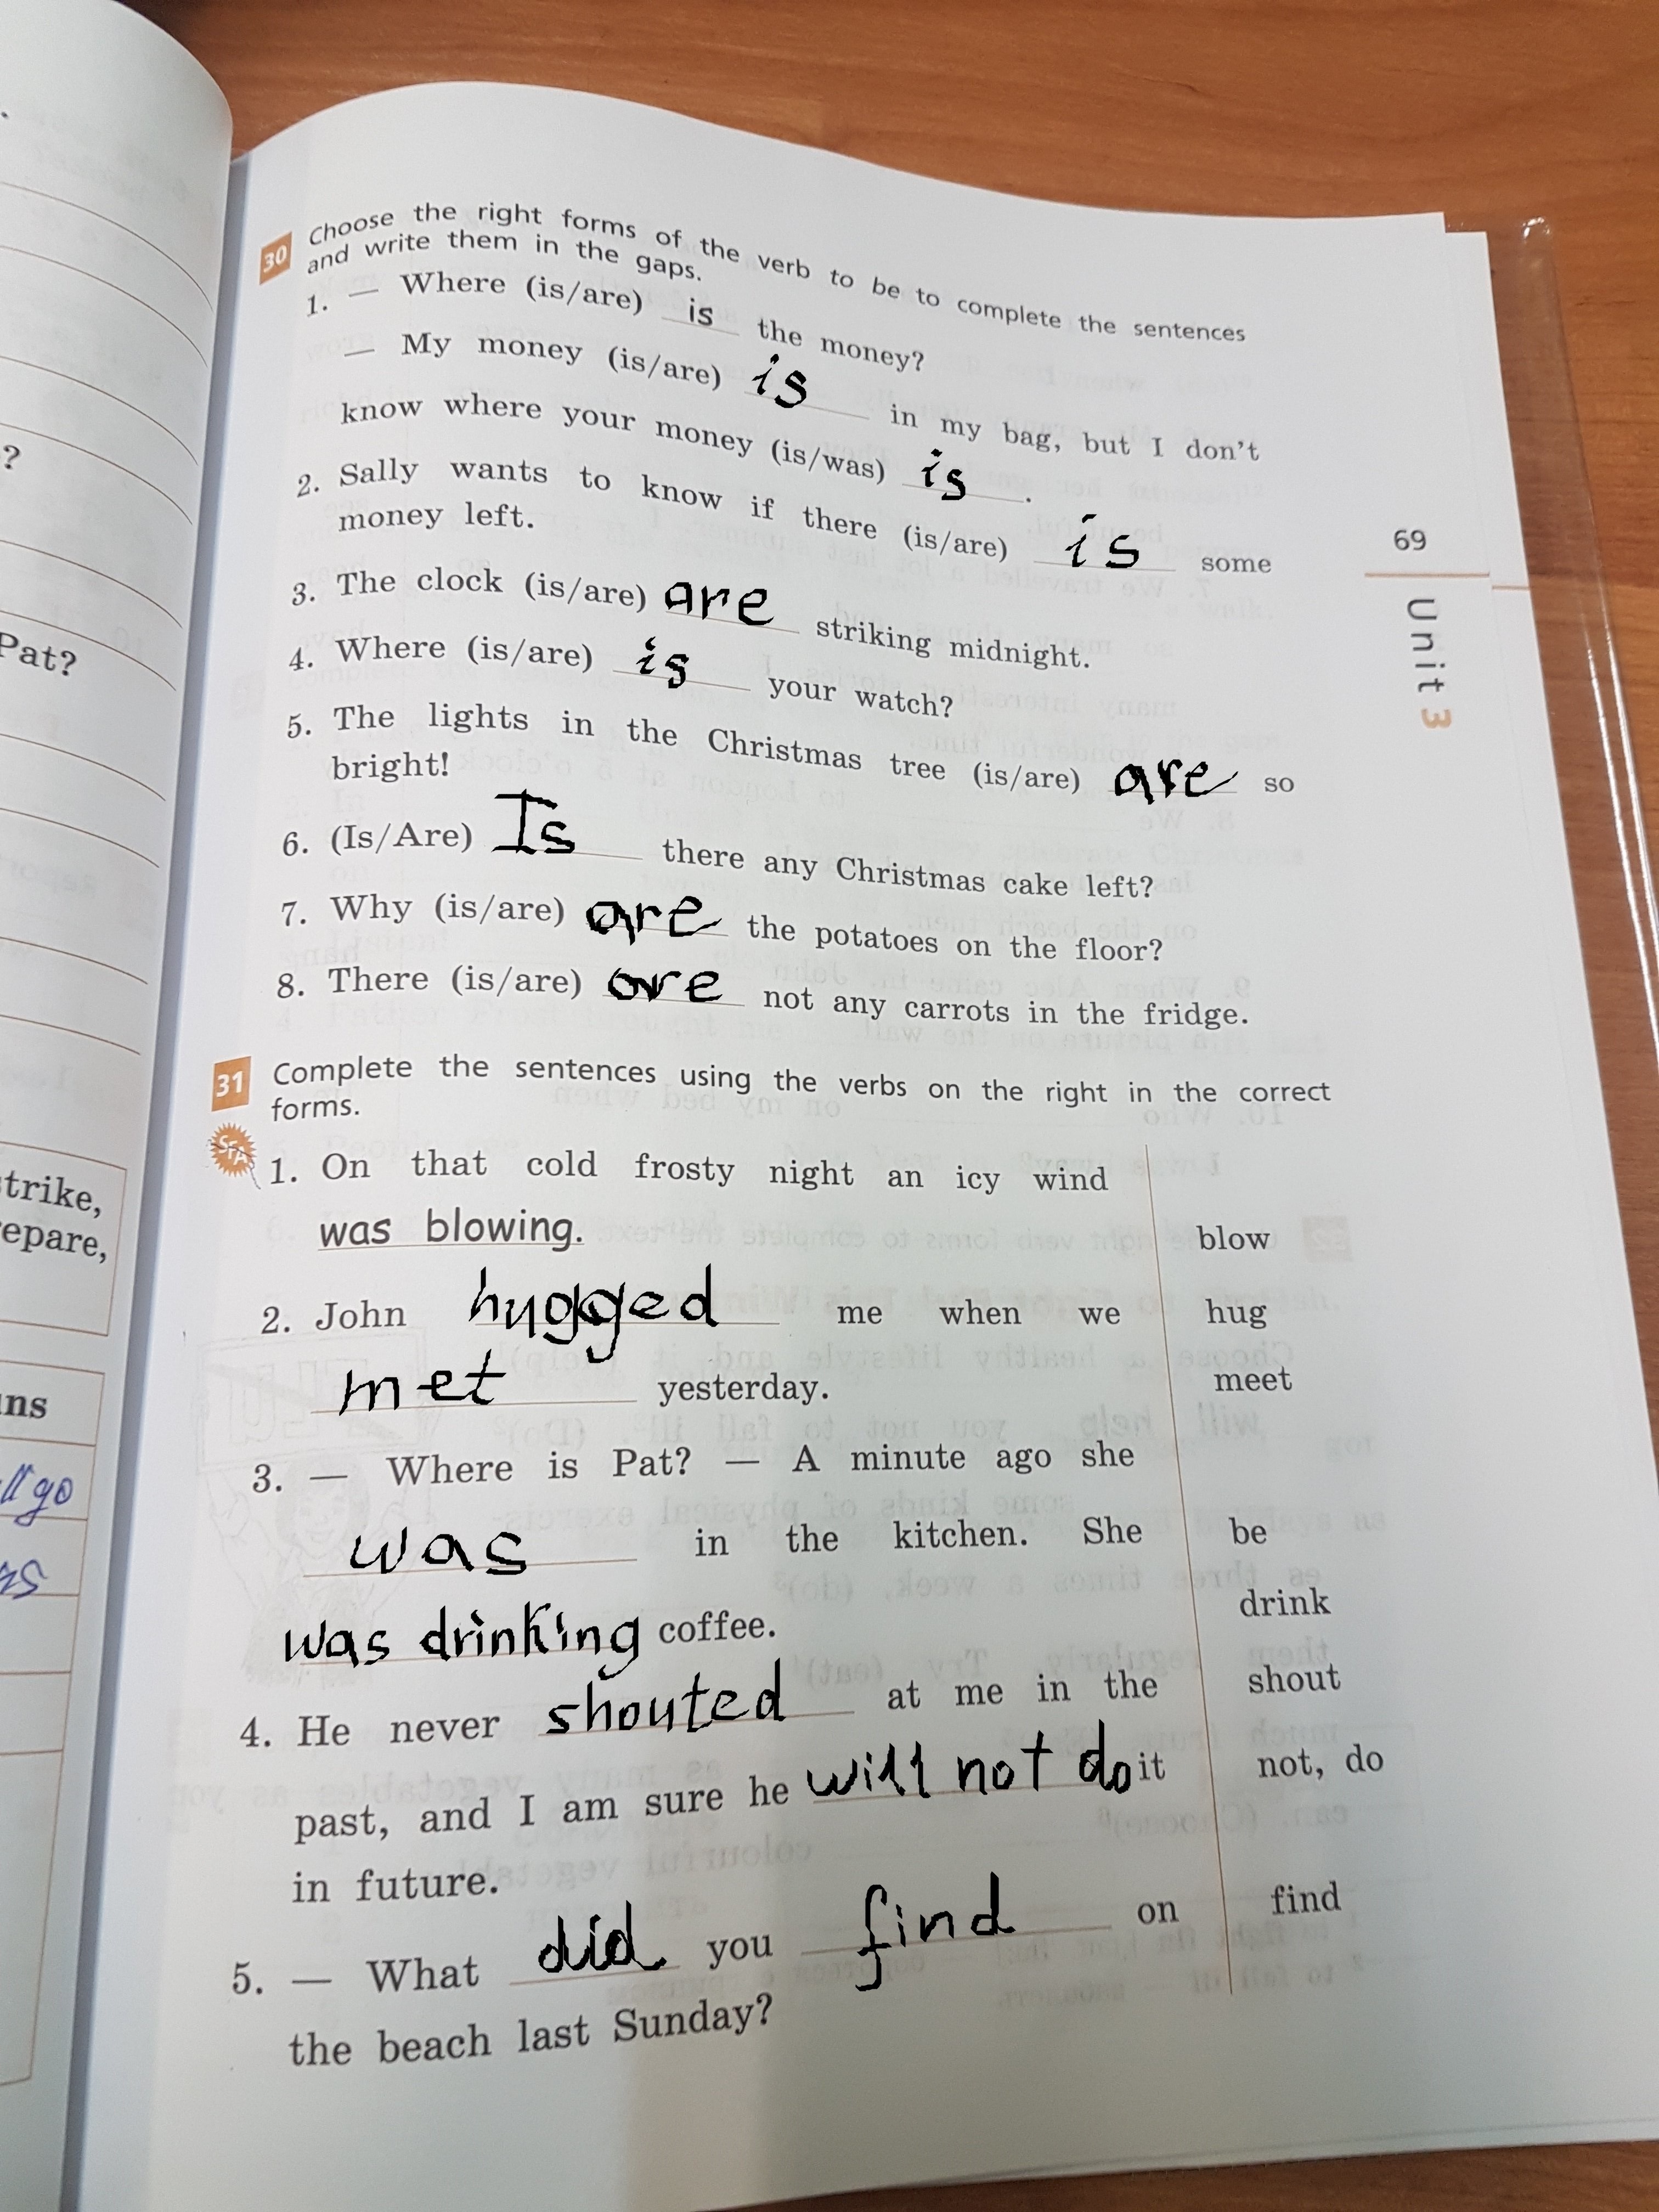 ?
Pat?
trike,
epare,
ns
'll go
30 Choose the right forms of the verb to be to complete the sentences
and write them in the gaps.
1. — Where (is/are) is the money?
— My money (is/are) is in my bag, but I don't
know where your money (is/was) is.
2. Sally wants to know if there (is/are) is some
money left.
3. The clock (is/are) are striking midnight.
4. Where (is/are) is your watch?
5. The lights in the Christmas tree (is/are) are so
bright!
6. (Is/Are) Is there any Christmas cake left?
7. Why (is/are) are the potatoes on the floor?
8. There (is/are) are not any carrots in the fridge.
69
Unit 3
31 Complete the sentences using the verbs on the right in the correct
forms.
SFA
1. On that cold frosty night an icy wind
was blowing. blow
2. John hugged me when we hug
met yesterday. meet
3. — Where is Pat? — A minute ago she
was in the kitchen. She be
was drinking coffee. drink
4. He never shouted at me in the shout
past, and I am sure he will not do it not, do
in future.
5. — What did you find on find
the beach last Sunday?